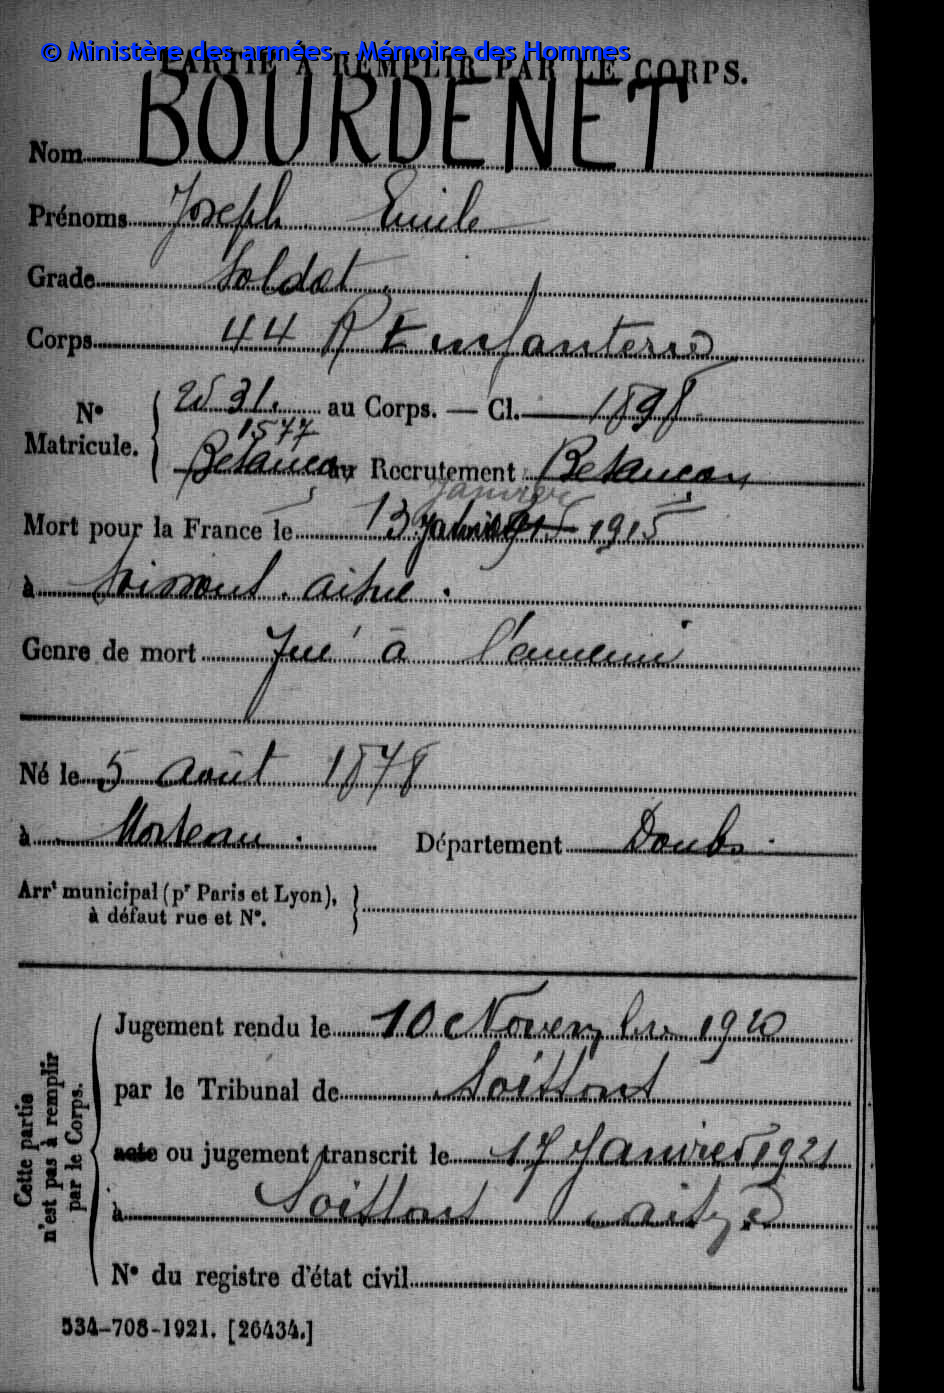 © Ministère des armées - Mémoire des Hommes
PARTIE À REMPLIR PAR LE CORPS.
Nom BOURDENET
Prénoms Joseph Emile
Grade Soldat.
Corps 44 Rt Infanterie
N° Matricule. 2531. au Corps. — Cl. 1898
1577
Besançon au Recrutement Besançon
janvier
Mort pour la France le 13 1915
à Soissons. Aisne.
Genre de mort Tué à l'ennemi
Né le 5 Août 1878
à Morteau. Département Doubs.
Arrt municipal (pr Paris et Lyon),
à défaut rue et N°.
Cette partie n'est pas à remplir par le Corps.
Jugement rendu le 10 Novembre 1920
par le Tribunal de Soissons
acte ou jugement transcrit le 17 Janvier 1921
à Soissons Aisne
N° du registre d'état civil
534-708-1921. [26434.]